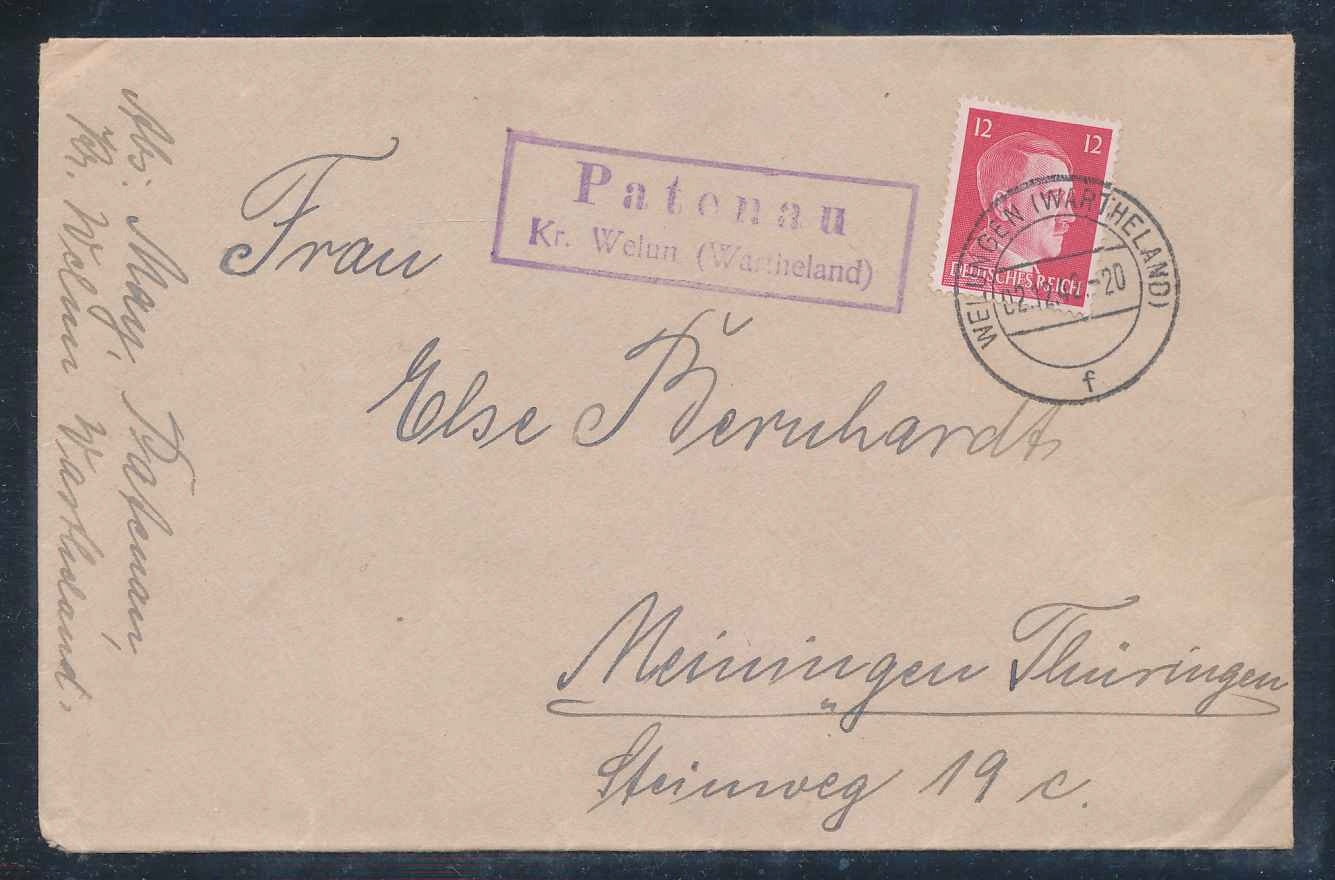 Abs: May, Patenau,
Kr. Welun Wartheland,
Patenau
Kr. Welun (Wartheland)
12 12
DEUTSCHES REICH
(WARTHELAND)
02.12. -20
f
Frau
Else Bernhardt
Meiningen Thüringen
Steinweg 19 c.